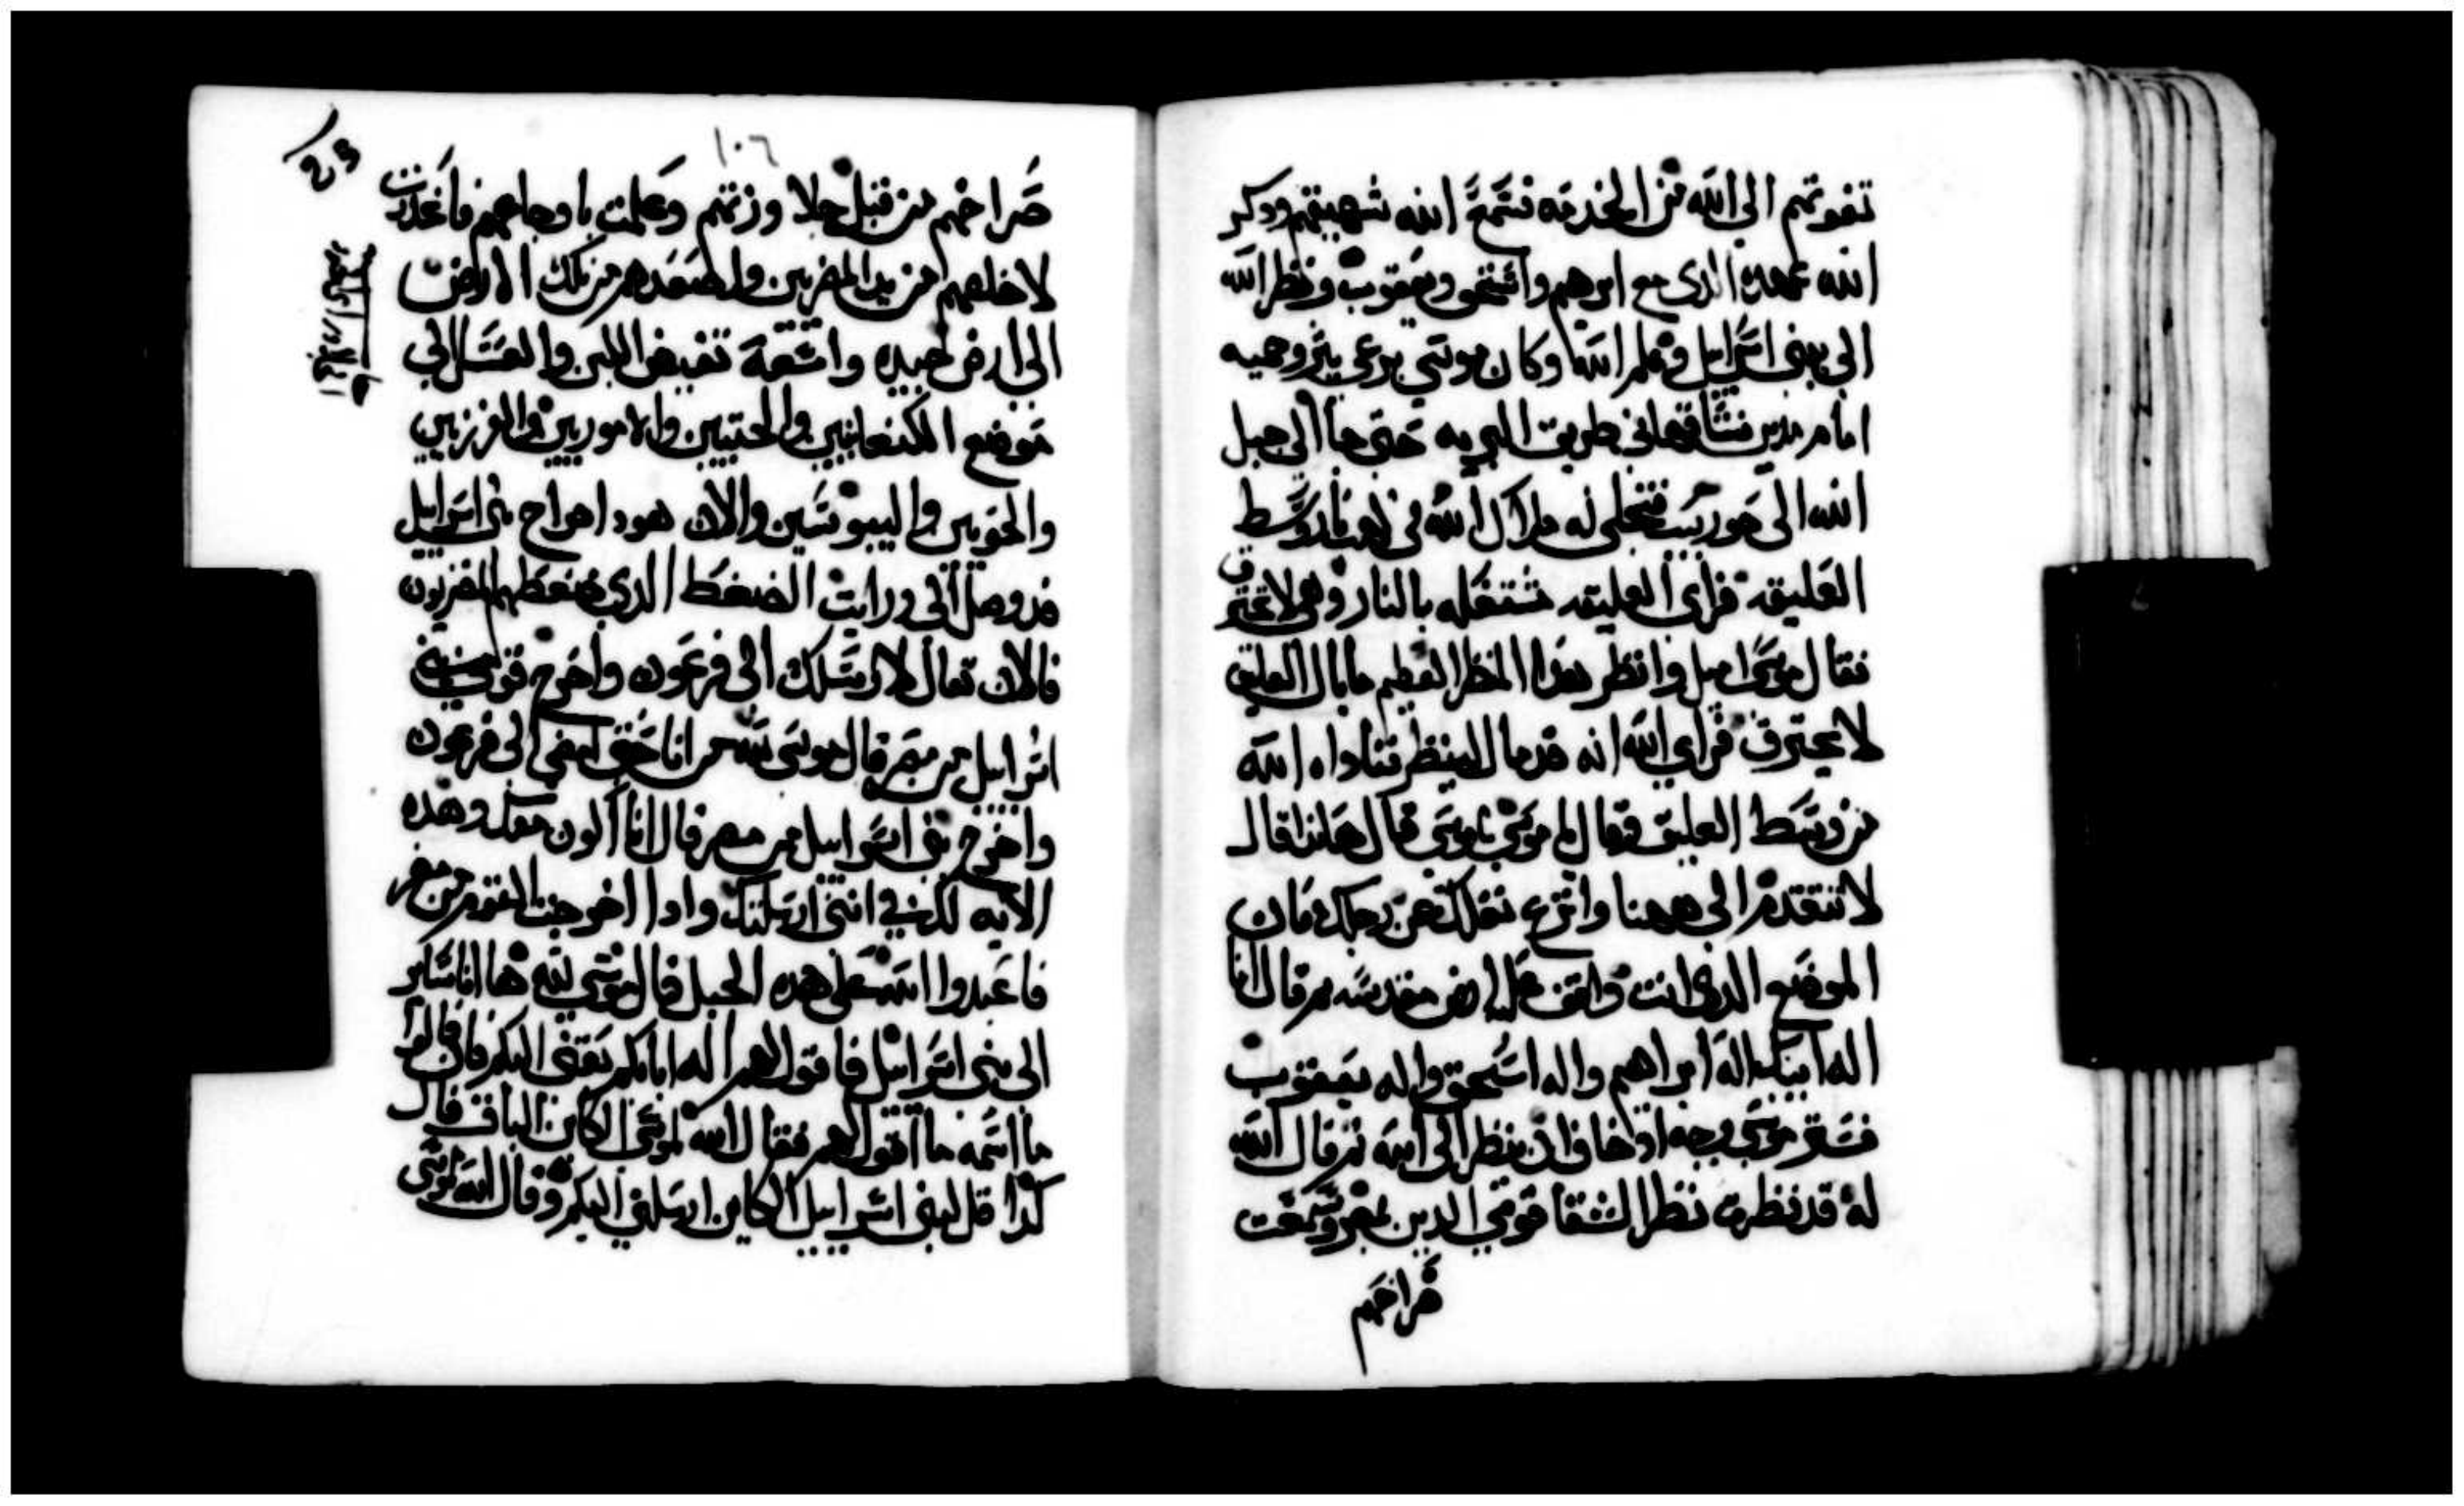 تغوثهم الى الله من الخدمه فسمع الله شهيقهم ودكر
الله عهده الدى مع ابرهيم واسحق ويعقوب ونظر الله
الى بنى اسراييل وعلم الله وكان موسى يرعى يثرو حميه
امام مدين فساقها فى طريق البريه حتى جا الى جبل
الله الى حوريب فتجلى له ملاك الله فى لهب نار وسط
العليقه فراى العليقه مشتعله بالنار وهى لا تحترق
فقال موسى اميل وانظر هدا المنظر العظيم ما بال العليق
لا يحترق فراى الله انه قد مال لينظر فناداه الله
من وسط العليق وقال يا موسى يا موسى قال هاندا قال
لا تتقدم الى ههنا وانزع نعلك من رجلك فان
الموضع الدى انت واقف عليه ارض مقدسه ثم قال انا
اله ابيك اله ابراهيم واله اسحق واله يعقوب
فستر موسى وجهه اد خاف ان ينظر الى الله ثم قال الله
له قد نظرت نظرا لشقا قومى الدين بمصر وسمعت
صراخهم
١٠٦
صراخهم من قبل جلاوزتهم وعلمت باوجاعهم فانحدرت
لاخلصهم من يد المصريين واصعدهم من تلك الارض
الى ارض جيده واسعة تفيض اللبن والعسل الى
موضع الكنعانيين والحتيين والاموريين والفرزيين
والحويين واليبوسيين والان هودا صراخ بنى اسراييل
قد وصل الى ورايت الضغط الدى ضغطهم المصريون
فالان تعال لارسلك الى فرعون واخرج قومى بنى
اسراييل من مصر قال موسى لله من انا حتى امضى الى فرعون
واخرج بنى اسراييل من مصر قال انا اكون معك وهده
الايه لك فى اننى ارسلتك وادا اخرجت القوم من مصر
فاعبدوا الله على هده الجبل قال موسى لله ها انا ساير
الى بنى اسراييل فاقول لهم اله ابايكم بعثنى اليكم فان قالوا
ما اسمه ما اقول لهم فقال الله لموسى الكاين الباق قال
كدا قل لبنى اسراييل الكاين ارسلنى اليكم وقال الله لموسى